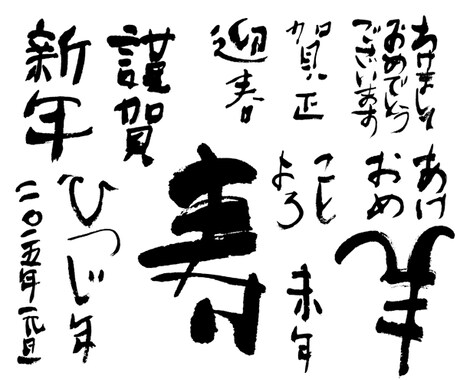 あけまして
おめでとう
ございます
賀正
迎春
謹賀
新年
あけ
おめ
こと
よろ
寿
ひつじ年
二〇一五年一元旦
羊
未年